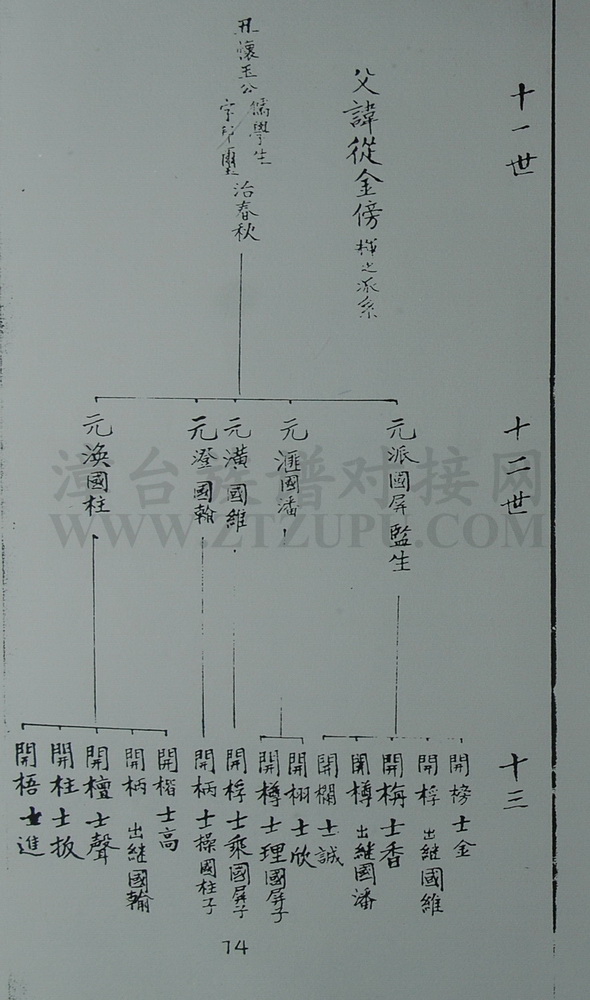 十一世
父諱從金傍 樨之派系
丑懷玉公 儒學生
字 璽 治春秋
十二世
元派國屏監生
元滙國潘
元潢國維
元澄國翰
元渙國柱
十三
開榜士金
開桴 出継國維
開梅士香
開樽 出継國潘
開欄士誠
開栩士欣
開樽士理國屏子
開桴士乘國屏子
開柄士操國柱子
開楷士高
開柄 出継國翰
開檀士聲
開柱士扳
開梧士進
74
漳台族谱对接网
WWW.ZTZUPU.COM